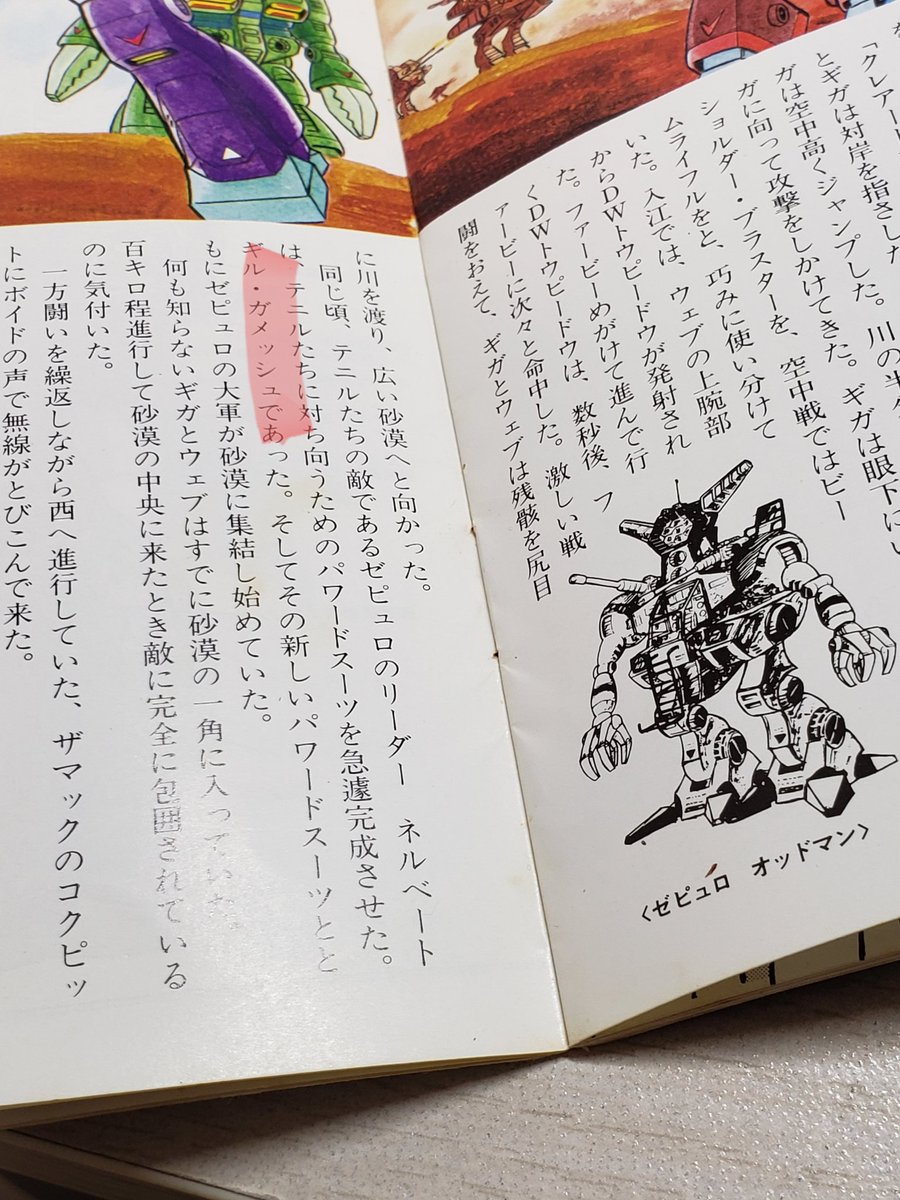 「クレアー
とギガは対岸を指さした。川の半
ガは空中高くジャンプした。ギガは眼下にい
ガに向って攻撃をしかけてきた。
ショルダー・ブラスターを、空中戦ではビー
ムライフルをと、巧みに使い分けて
いた。入江では、ウェブの上腕部
からDWトウピードウが発射され
た。ファービーめがけて進んで行
くDWトウピードウは、数秒後、フ
ァービーに次々と命中した。激しい戦
闘をおえて、ギガとウェブは残骸を尻目
〈ゼピュロ オッドマン〉
に川を渡り、広い砂漠へと向かった。
同じ頃、テニルたちの敵であるゼピュロのリーダー ネルベート
は、テニルたちに対ち向うためのパワードスーツを急遽完成させた。
ギル・ガメッシュであった。そしてその新しいパワードスーツとと
もにゼピュロの大軍が砂漠に集結し始めていた。
何も知らないギガとウェブはすでに砂漠の一角に入っていた。
百キロ程進行して砂漠の中央に来たとき敵に完全に包囲されている
のに気付いた。
一方闘いを繰返しながら西へ進行していた、ザマックのコクピッ
トにボイドの声で無線がとびこんで来た。